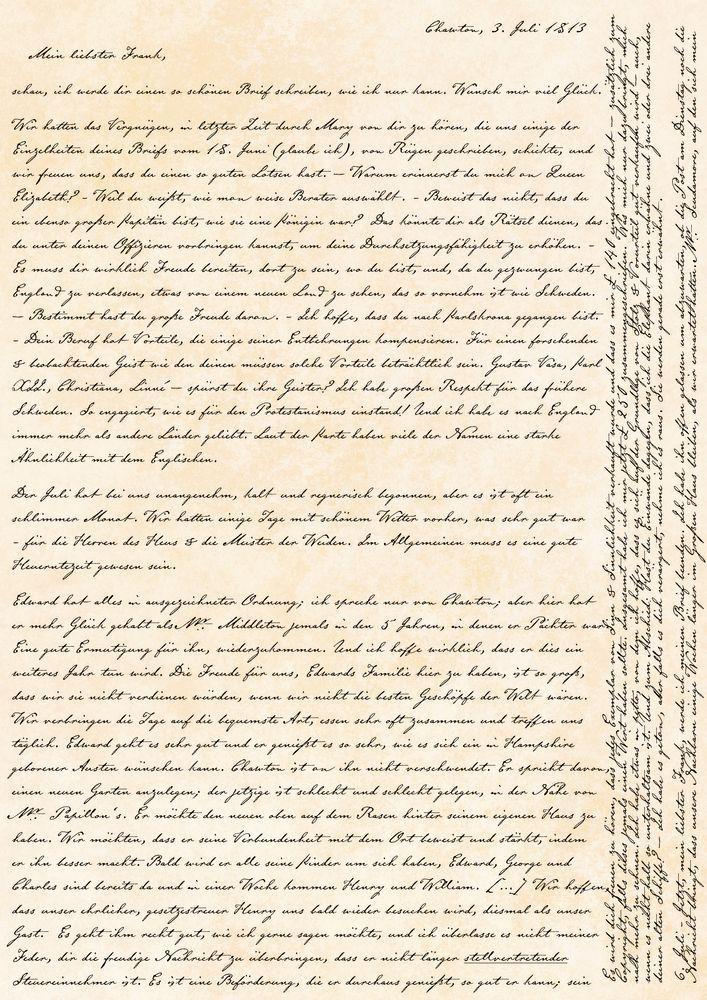 Chawton, 3. Juli 1813
Mein liebster Frank,
schau, ich werde dir einen so schönen Brief schreiben, wie ich nur kann. Wünsch mir viel Glück.
Wir hatten das Vergnügen, in letzter Zeit durch Mary von dir zu hören, die uns einige der
Einzelheiten deines Briefs vom 18. Juni (glaube ich), von Rügen geschrieben, schickte, und
wir freuen uns, dass du einen so guten Lotsen hast. — Warum erinnerst du mich an Queen
Elizabeth? - Weil du weißt, wie man weise Berater auswählt. - Beweist das nicht, dass du
ein ebenso großer Kapitän bist, wie sie eine Königin war? Das könnte dir als Rätsel dienen, das
du unter deinen Offizieren vorbringen kannst, um deine Durchsetzungsfähigkeit zu erhöhen. -
Es muss dir wirklich Freude bereiten, dort zu sein, wo du bist, und, da du gezwungen bist,
England zu verlassen, etwas von einem neuen Land zu sehen, das so vornehm ist wie Schweden.
— Bestimmt hast du große Freude daran. - Ich hoffe, dass du nach Karlskrona gegangen bist.
- Dein Beruf hat Vorteile, die einige seiner Entbehrungen kompensieren. Für einen forschenden
& beobachtenden Geist wie den deinen müssen solche Vorteile beträchtlich sein. Gustav Vasa, Karl
XII., Christiana, Linné — spürst du ihre Geister? Ich habe großen Respekt für das frühere
Schweden. So engagiert, wie es für den Protestanismus einstand! Und ich habe es nach England
immer mehr als andere Länder geliebt. Laut der Karte haben viele der Namen eine starke
Ähnlichkeit mit dem Englischen.
Der Juli hat bei uns unangenehm, kalt und regnerisch begonnen, aber es ist oft ein
schlimmer Monat. Wir hatten einige Tage mit schönem Wetter vorher, was sehr gut war
- für die Herren des Heus & die Meister der Weiden. Im Allgemeinen muss es eine gute
Heuerntezeit gewesen sein.
Edward hat alles in ausgezeichneter Ordnung; ich spreche nur von Chawton; aber hier hat
er mehr Glück gehabt als Mr. Middleton jemals in den 5 Jahren, in denen er Pächter war.
Eine gute Ermutigung für ihn, wiederzukommen. Und ich hoffe wirklich, dass er dies ein
weiteres Jahr tun wird. Die Freude für uns, Edwards Familie hier zu haben, ist so groß,
dass wir sie nicht verdienen würden, wenn wir nicht die besten Geschöpfe der Welt wären.
Wir verbringen die Tage auf die bequemste Art, essen sehr oft zusammen und treffen uns
täglich. Edward geht es sehr gut und er genießt es so sehr, wie es sich ein in Hampshire
geborener Austen wünschen kann. Chawton ist an ihn nicht verschwendet. Er spricht davon,
einen neuen Garten anzulegen; der jetzige ist schlecht und schlecht gelegen, in der Nähe von
Mr. Papillon's. Er möchte den neuen oben auf dem Rasen hinter seinem eigenen Haus zu
haben. Wir möchten, dass er seine Verbundenheit mit dem Ort beweist und stärkt, indem
er ihn besser macht. Bald wird er alle seine Kinder um sich haben, Edward, George und
Charles sind bereits da und in einer Woche kommen Henry und William. [...] Wir hoffen,
dass unser ehrlicher, gesetzestreuer Henry uns bald wieder besuchen wird, diesmal als unser
Gast. Es geht ihm recht gut, wie ich gerne sagen möchte, und ich überlasse es nicht meiner
Feder, dir die freudige Nachricht zu überbringen, dass er nicht länger stellvertretender
Steuereinnehmer ist. Es ist eine Beförderung, die er durchaus genießt, so gut er kann; sein
Es wird dich freuen zu hören, dass jedes Exemplar von Sinn & Sinnlichkeit verkauft wurde und dass es mir £ 140 eingebracht hat — zusätzlich zum
Copyright, falls dieses jemals einen Wert haben sollte. Insgesamt habe ich mir jetzt £ 250 zusammengeschrieben. Was mich nur dazu bringt, mich
nach mehr zu sehnen. Ich habe etwas in petto, von dem ich hoffe, dass es sich auf der Grundlage von Stolz & Vorurteil gut verkaufen wird — auch
wenn es nicht halb so unterhaltsam ist. Und zum Abschied: Hast du Einwände dagegen, dass ich die Elephant darin erwähne und zwei oder drei andere
deiner alten Schiffe? — Ich habe es getan, aber falls es dich verärgert, nehme ich es raus. Sie werden gerade erst erwähnt.
6. Juli - Jetzt, mein liebster Frank, werde ich meinen Brief beenden. Ich habe ihn offen gelassen um abzuwarten, ob die Post am Dienstag noch die
Nachricht bringt, dass unsere Nachbarn einige Wochen länger im Großen Haus bleiben, als wir erwartet hatten. Mr. Scudamore, auf den sich mein